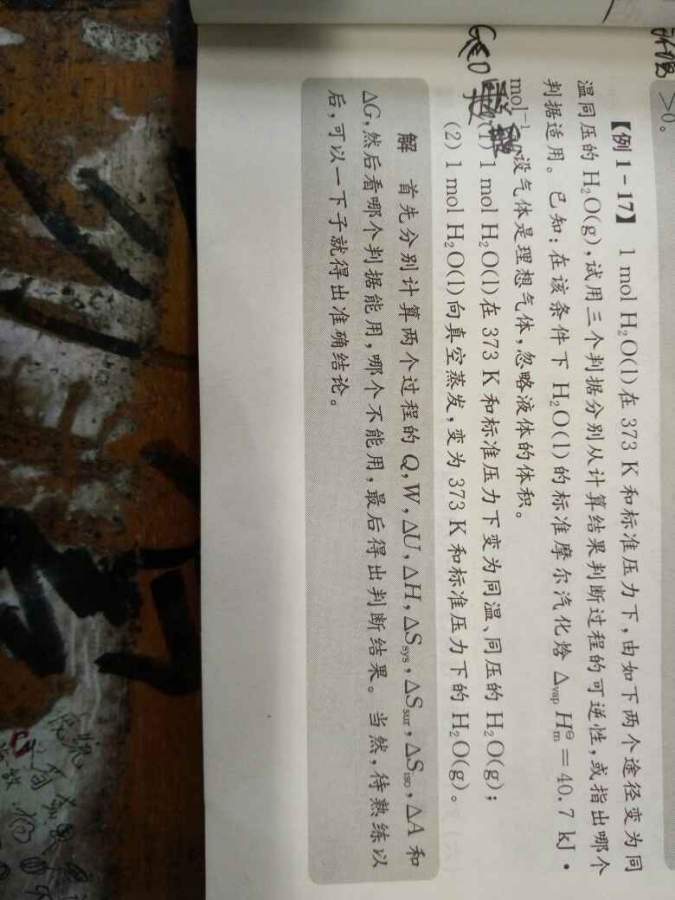 >0。
【例1-17】 1 mol H₂O(l)在 373 K 和标准压力下,由如下两个途径变为同
温同压的 H₂O(g),试用三个判据分别从计算结果判断过程的可逆性,或指出哪个
判据适用。已知:在该条件下 H₂O(l)的标准摩尔汽化焓 ΔvapHm⊖=40.7 kJ·
mol⁻¹,设气体是理想气体,忽略液体的体积。
(1) 1 mol H₂O(l)在 373 K 和标准压力下变为同温、同压的 H₂O(g);
(2) 1 mol H₂O(l)向真空蒸发,变为 373 K 和标准压力下的 H₂O(g)。
解 首先分别计算两个过程的 Q,W,ΔU,ΔH,ΔSsys,ΔSsur,ΔSiso,ΔA 和
ΔG,然后看哪个判据能用,哪个不能用,最后得出判断结果。当然,待熟练以
后,可以一下子就得出准确结论。